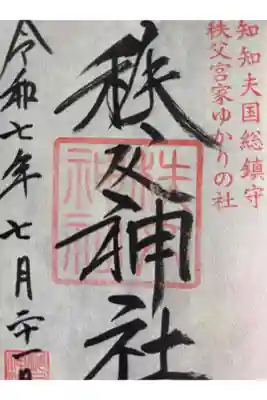 知知夫国総鎮守
秩父宮家ゆかりの社
秩父神社
令和七年七月二十一日
秩父
神社